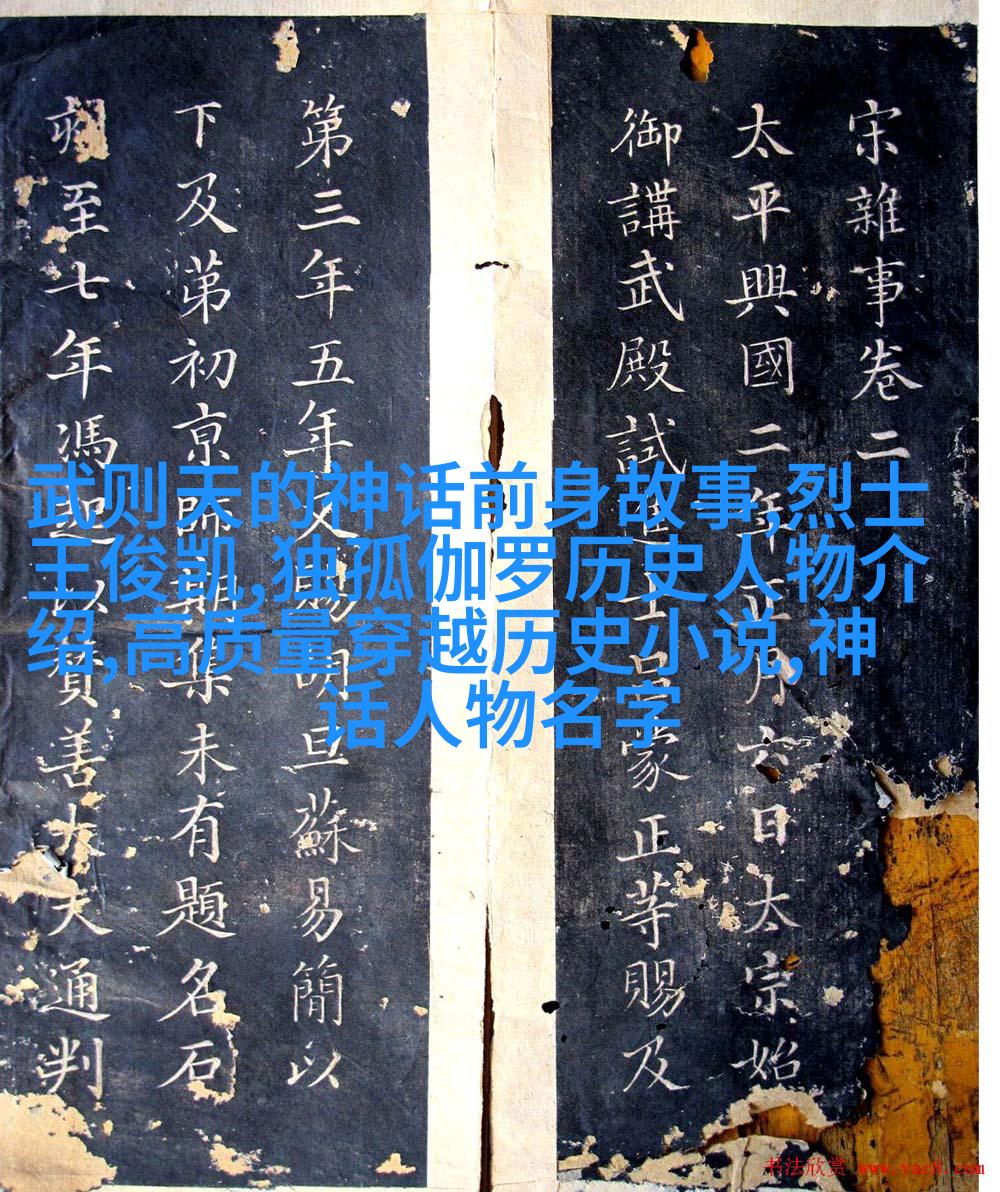 宋雜事卷二
太平興國二年正月六日太宗始
御講武殿試進士呂蒙正等賜及
第三年五年又賜明旦蘇易簡以
下及第初京師期集未有題名石
至七年馮以賛善大夫通判
武则天的神话前身故事,烈士
王俊凯,独孤伽罗历史人物介
绍,高质量穿越历史小说,神
话人物名字
书法欣赏 www.yac8.com